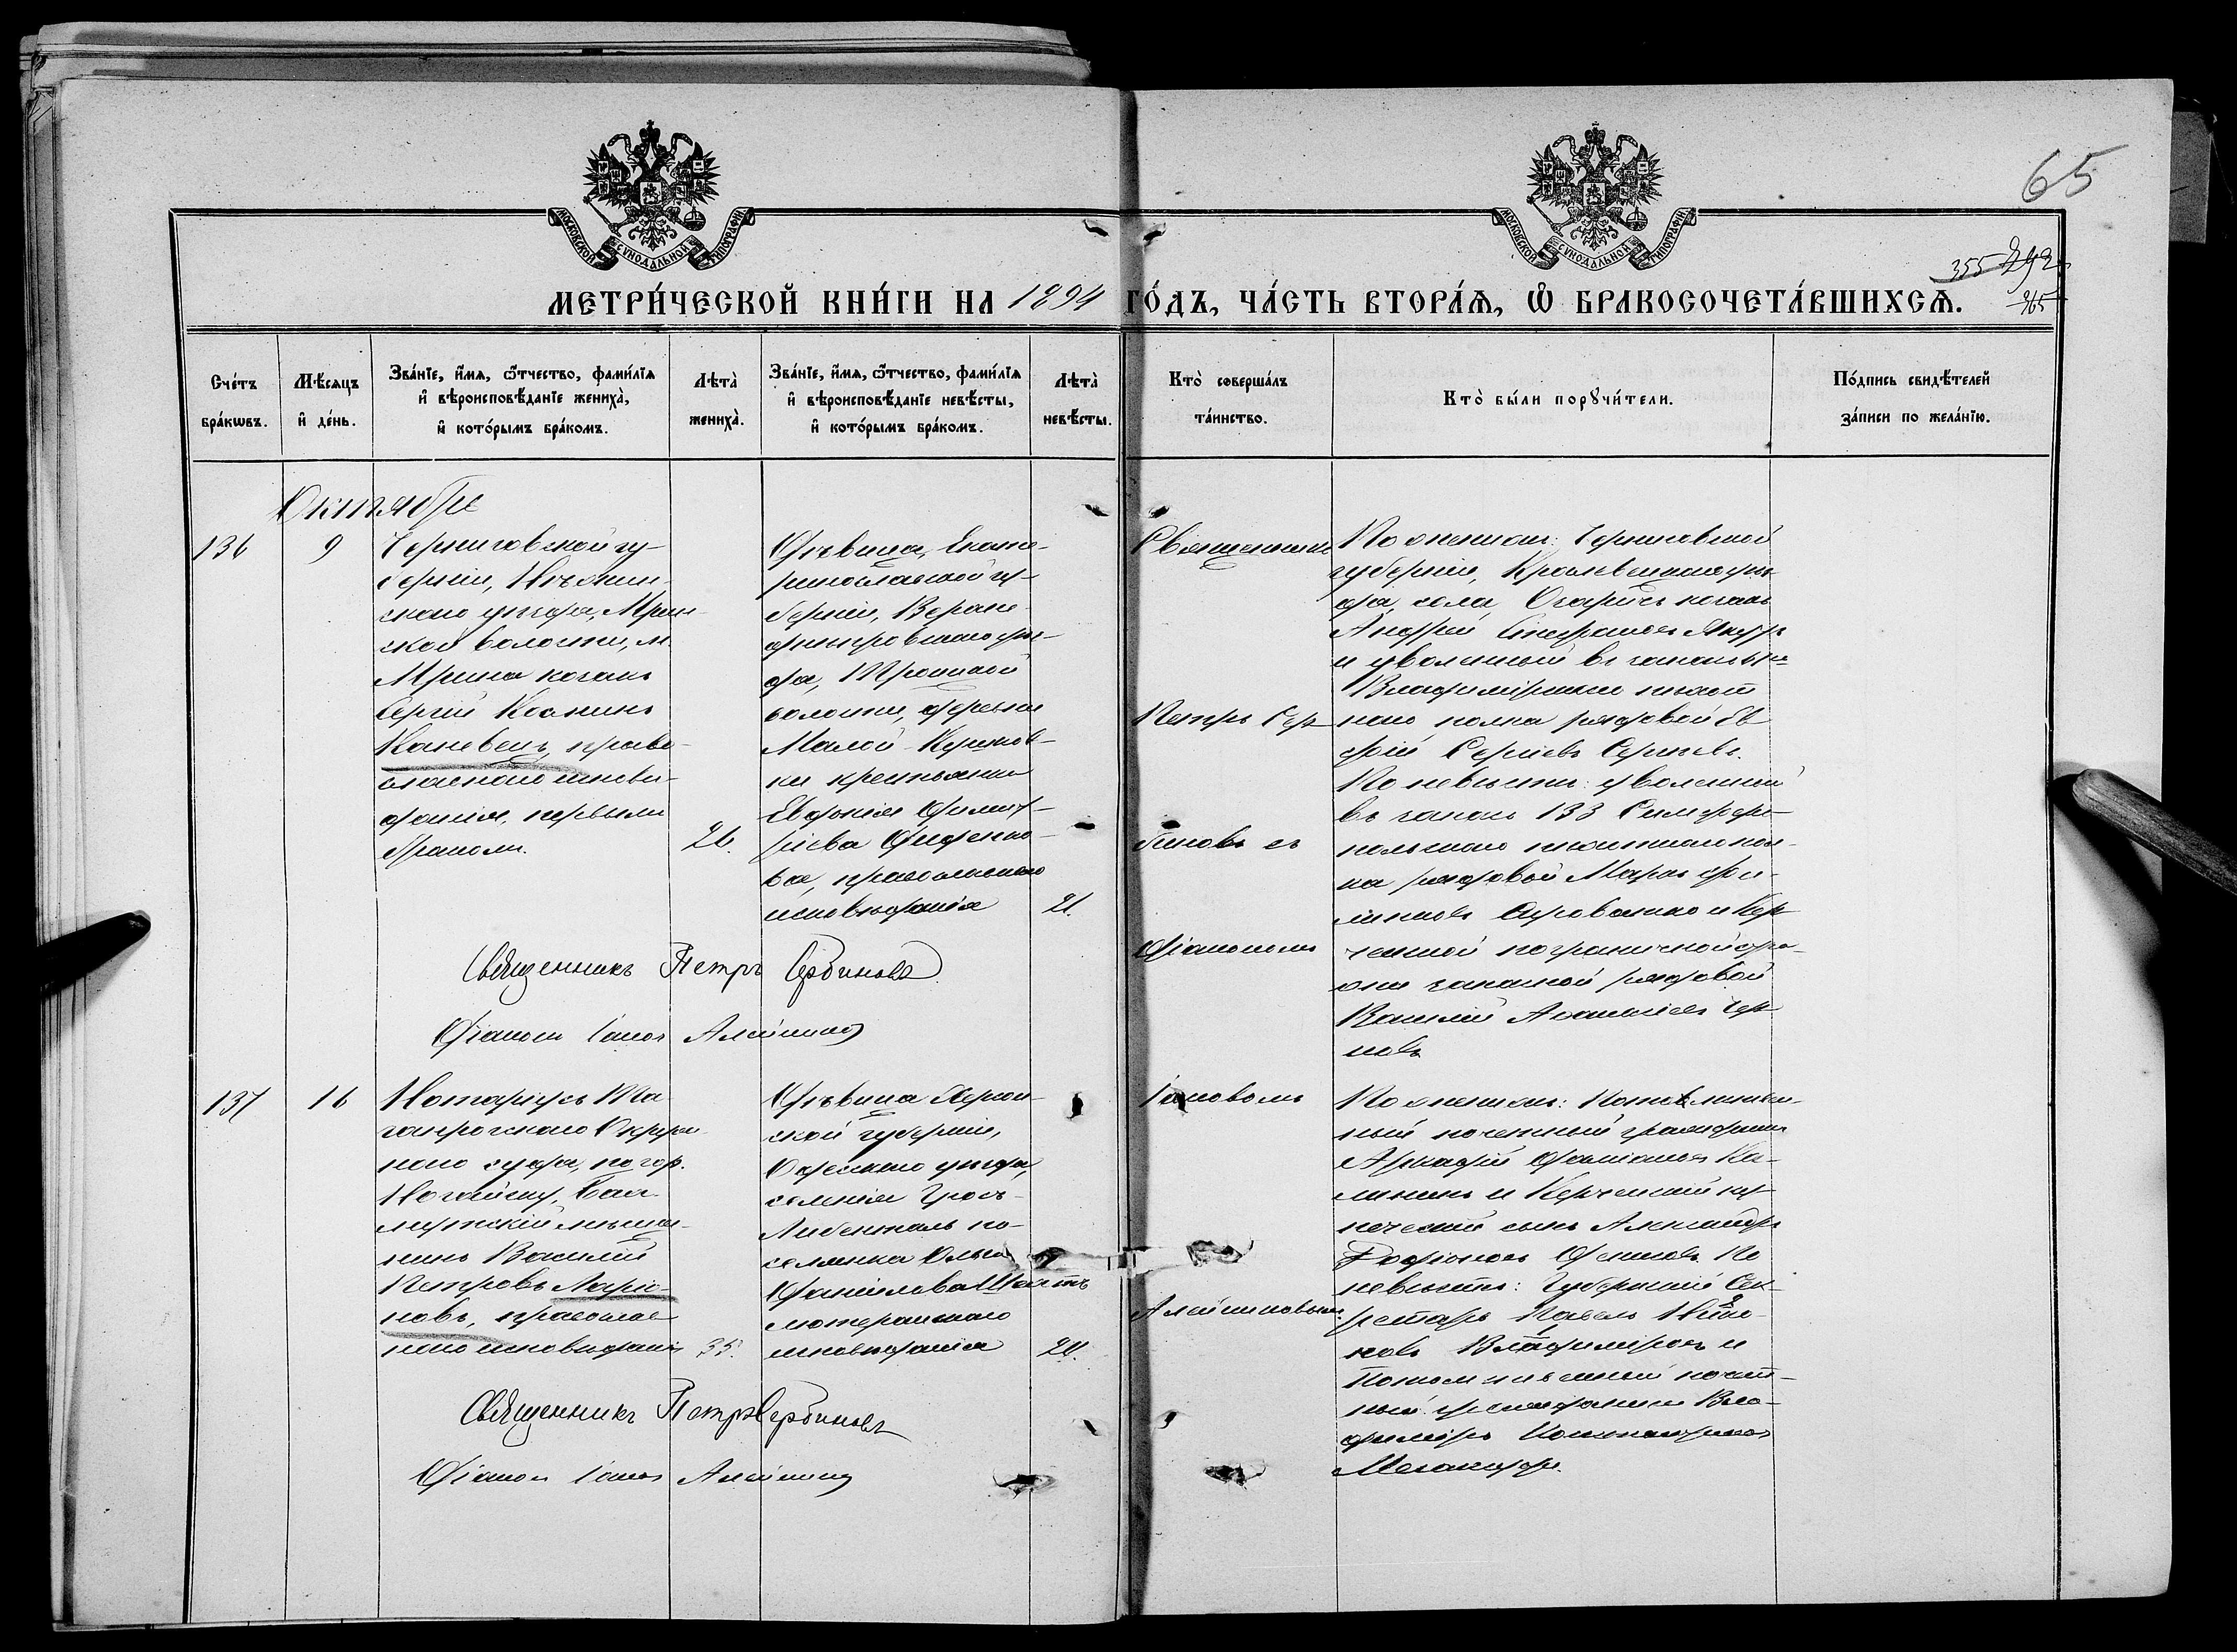 65
МОСКОВСКОЙ СУНОДАЛЬНОЙ ТИПОГРАФІИ
МОСКОВСКОЙ СУНОДАЛЬНОЙ ТИПОГРАФІИ
355 292
365
МЕТРИ́ЧЕСКОЙ КНИ́ГИ НА 1894 ГО́ДЪ, ЧА́СТЬ ВТОРА́Ѧ, Ѡ҆ БРАКОСОЧЕТА́ВШИХСѦ.
Сче́тъ
бра́кѡвъ.
Мѣ́сѧцъ
и҆ де́нь.
Зва́нїе, и҆́мѧ, ѻ҆́тчество, фами́лїѧ
и҆ вѣроисповѣ́данїе жениха̀,
и҆ кото́рымъ бра́комъ.
Лѣта̀
жениха̀.
Зва́нїе, и҆́мѧ, ѻ҆́тчество, фами́лїѧ
и҆ вѣроисповѣ́данїе невѣ́сты,
и҆ кото́рымъ бра́комъ.
Лѣта̀
невѣ́сты.
Кто̀ соверша́лъ
та́инство.
Кто̀ бы́ли порꙋчи́тели.
По́дпись свидѣ́телей
за́писи по жела́нїю.
Октября
136
9
Черниговской гу-
берніи, Нѣжин-
скаго уѣзда, Мрин-
ской волости, м.
Мрина козакъ
Сергій Козминъ
Каневецъ, право-
славнаго испови-
данія, первымъ
бракомъ.
26.
Дѣвица, Екате-
ринославской гу-
берніи, Верхне-
днѣпровскаго уѣз-
да, Троицкой
волости, деревни
Малой-
ки крестьянка
Евдокія Димит-
ріева Диденко-
ва, православнаго
исповѣданія
21.
Священникъ
Петръ Сер-
биновъ съ
діакономъ
По женихѣ: Черниговской
губерніи, Кролевецкаго уѣз-
да, села, козакъ
Андрей Стефановъ
и уволенный въ запасъ
Владимірскаго пѣхот-
наго полка рядовой Ев-
фій Сергіевъ Сергѣевъ.
По невѣстѣ: уволенный
въ запасъ 133 Симферо-
польскаго пѣхотнаго пол-
ка рядовой Маркъ
и Кер-
ченской пограничной бри-
гады запасной рядовой
Василій Аѳанасіевъ Чер-
новъ
Священникъ Петръ Сербиновъ
Діаконъ Іаковъ Алейниковъ
137
16
Нотаріусъ Та-
ганрогскаго Окруж-
наго суда, по гор.
Ногайску, Бах-
мутскій мѣща-
нинъ Василій
Петровъ Ларіо-
новъ, православ-
наго исповѣданія
35.
Дѣвица Херсон-
ской губерніи,
Одесскаго уѣзда,
селенія Грос-
Либенталь по-
селянка Ольга
Даніилова
лютеранскаго
исповѣданія
24.
Іаковомъ
Алейниковымъ.
По женихѣ: Потомствен-
ный почетный гражданинъ
Аркадій Ка-
лининъ и Керченскій ку-
печескій сынъ Александръ
Родіоновъ По
невѣстѣ: Губернскій Сек-
ретарь Павелъ
Владиміровъ и
Потомственный почет-
ный гражданинъ Вла-
диміръ Константиновъ
Священникъ Петръ Сербиновъ
Діаконъ Іаковъ Алейниковъ